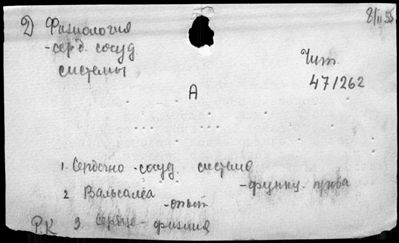 2) Физиология
8/II 55
-серд. сосуд.
системы
Чит.
47/262
А
1. Сердечно-сосуд. система
-функц. проба
2 Вальсалва
-опыт
РК 3. Сердце-физиол